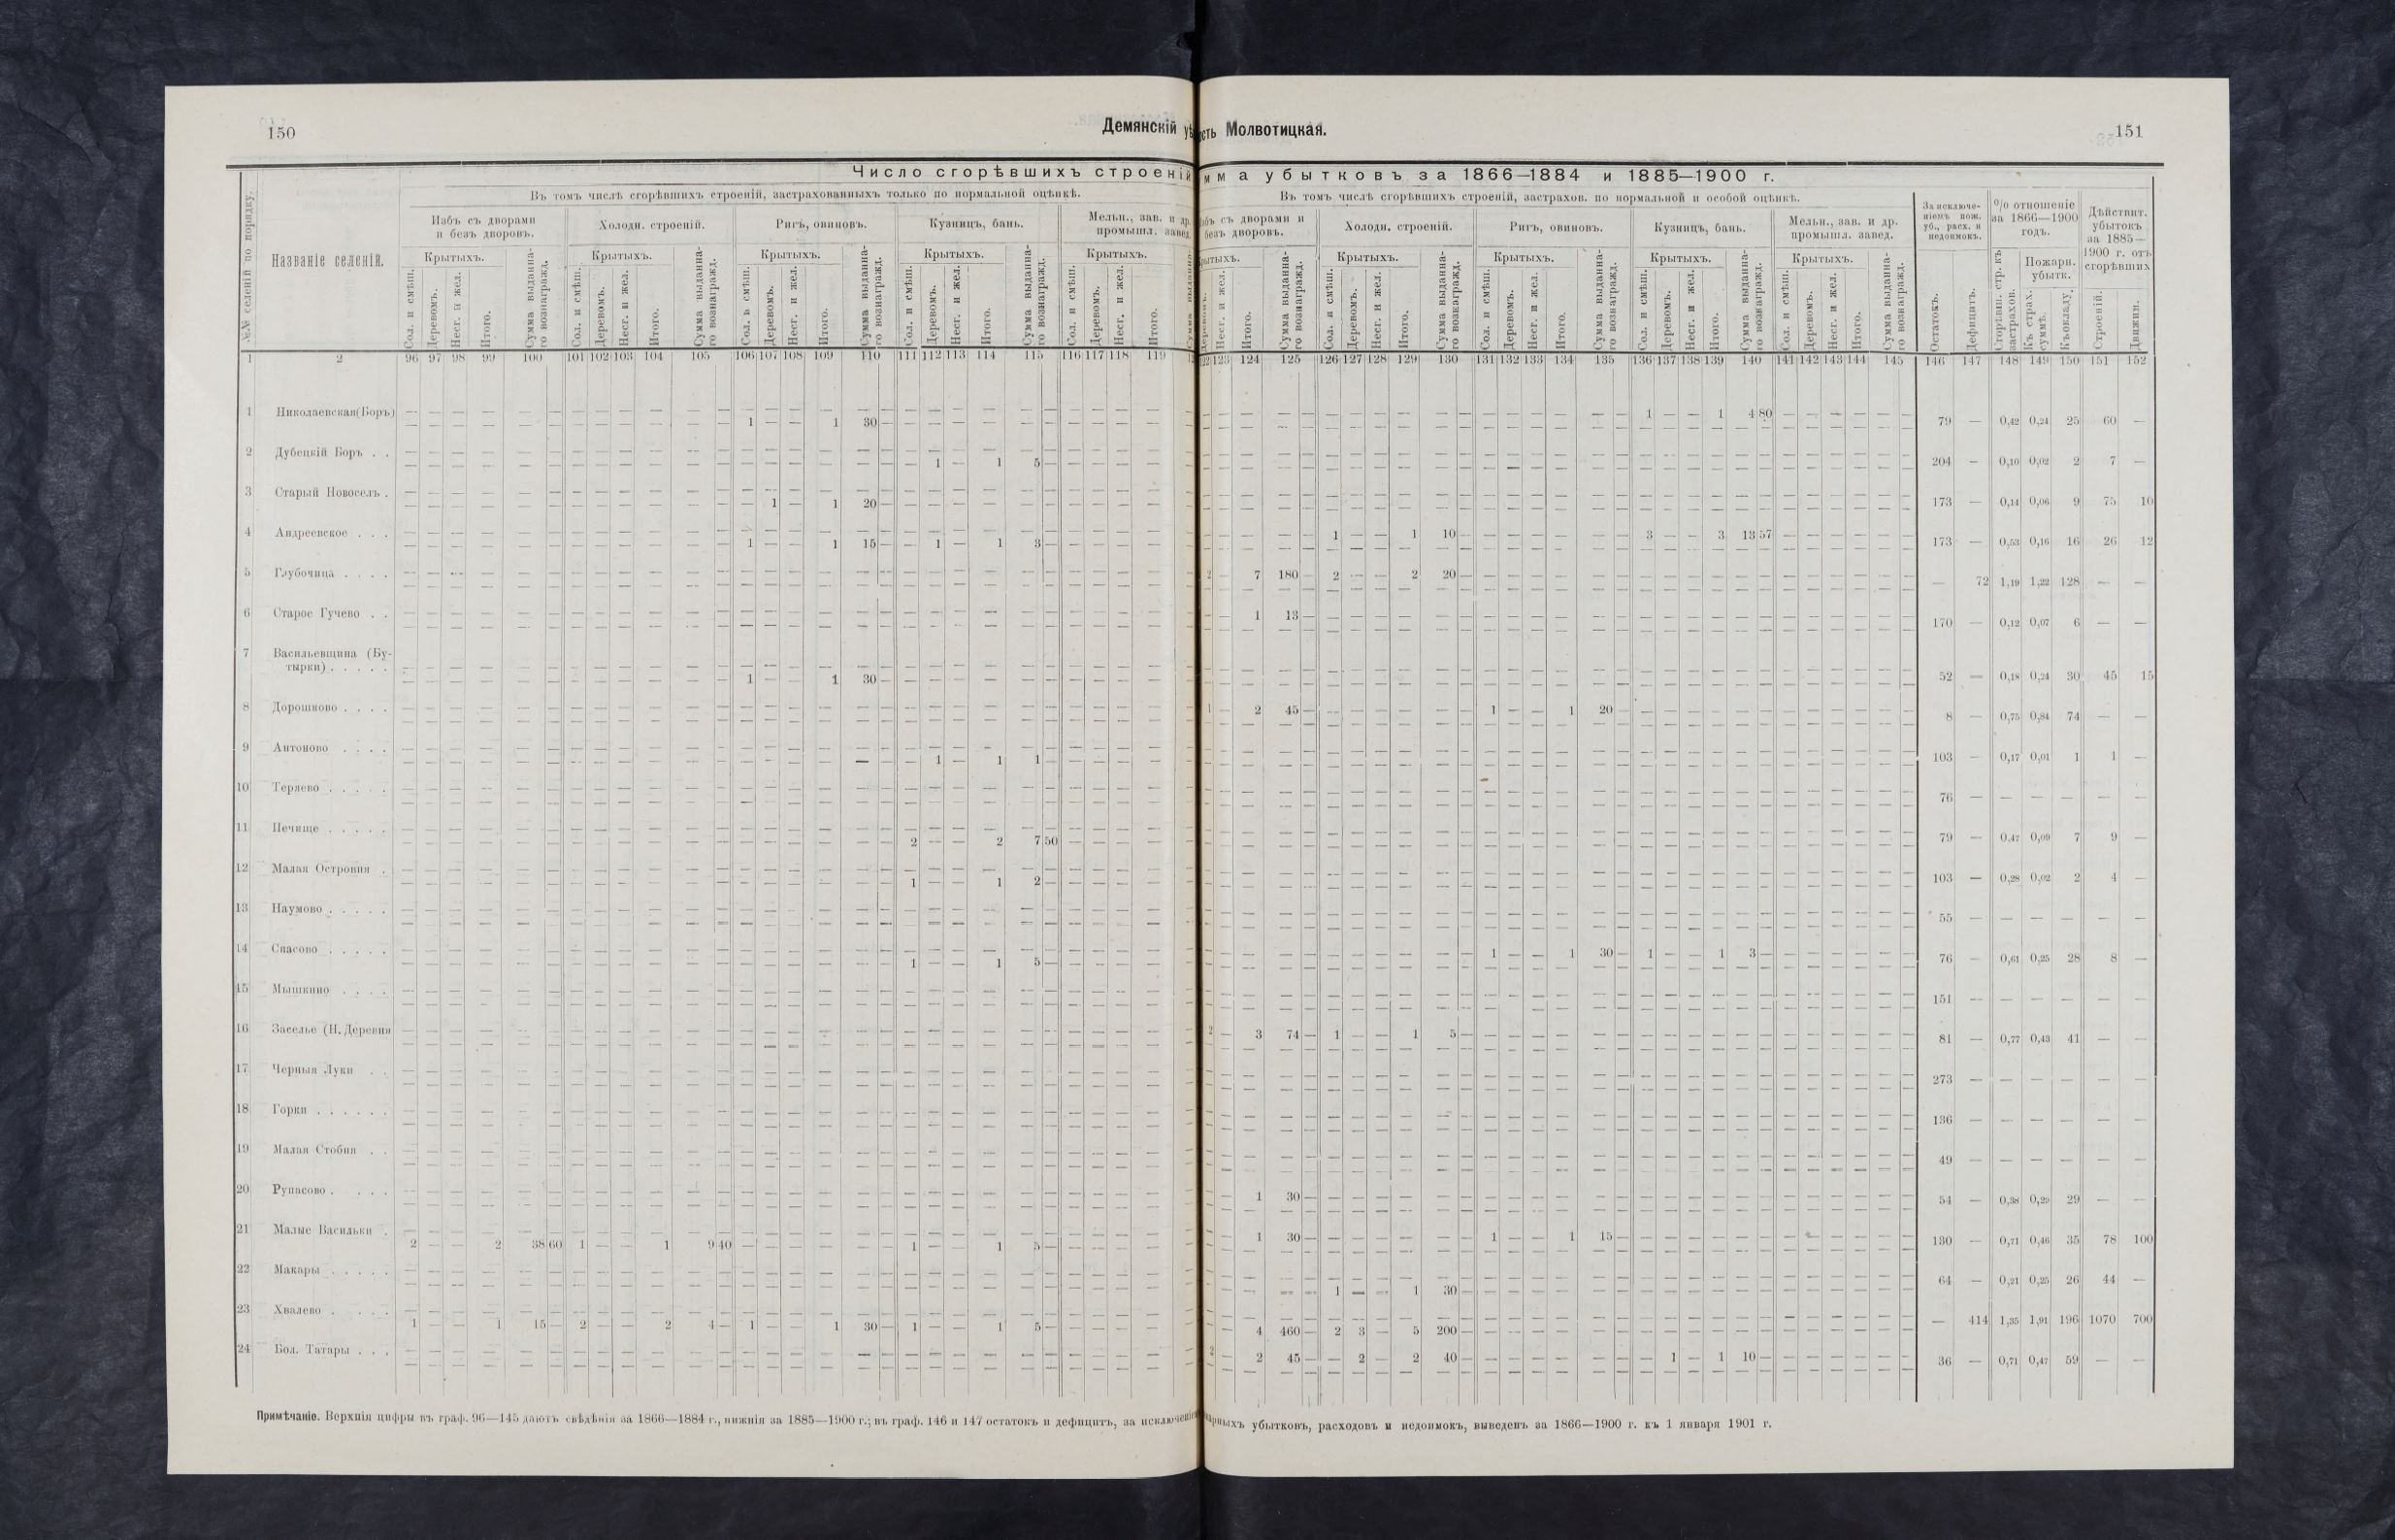 150
Демянскій
сть Молвотицкая.
151
Число сгорѣвшихъ строеній
мма убытковъ за 1866—1884 и 1885—1900 г.
Въ томъ числѣ сгорѣвшихъ строеній, застрахованныхъ только по нормальной оцѣнкѣ.
Въ томъ числѣ сгорѣвшихъ строеній, застрахов. по нормальной и особой оцѣнкѣ.
№№ селеній по порядку.
Названіе селеній.
Избъ съ дворами и безъ дворовъ.
Холодн. строеній.
Ригъ, овиновъ.
Кузницъ, бань.
Мельн., зав. и др. промышл. завед.
съ дворами и безъ дворовъ.
Холодн. строеній.
Ригъ, овиновъ.
Кузницъ, бань.
Мельн., зав. и др. промышл. завед.
За исключеніемъ пож. уб., расх. и недоимокъ.
% отношеніе за 1866—1900 годъ.
Дѣйствит. убытокъ за 1885—1900 г. отъ сгорѣвшихъ
Крытыхъ. Крытыхъ. Крытыхъ. Крытыхъ. Крытыхъ.
Крытыхъ. Крытыхъ. Крытыхъ. Крытыхъ.
Пожарн. убытк.
Сол. и смѣш. Деревомъ. Несг. и жел. Итого. Сумма выданнаго вознагражд.
Остатокъ. Дефицитъ. Сгорѣвш. стр. къ застрахов. Къ страх. суммѣ. Къ окладу. Строеній. Движим.
1 2 96 97 98 99 100 101 102 103 104 105 106 107 108 109 110 111 112 113 114 115 116 117 118 119
123 124 125 126 127 128 129 130 131 132 133 134 135 136 137 138 139 140 141 142 143 144 145 146 147 148 149 150 151 152
1 Николаевская(Боръ) — — — — — — — — — — — — — —
1 — — 1 30 —
1 — — 1 4 80
79 — 0,42 0,24 25 60 —
2 Дубецкій Боръ . .
— 1 — 1 5 —
204 — 0,10 0,02 2 7 —
3 Старый Новоселъ .
— 1 — 1 20 —
173 — 0,14 0,06 9 75 10
4 Андреевское . . .
1 — — 1 10 — 3 — — 3 13 57
1 — — 1 15 — — 1 — 1 3 —
173 — 0,53 0,16 16 26 12
5 Глубочица . . . .
2 — 7 180 — 2 — — 2 20 —
— 72 1,19 1,22 128 — —
6 Старое Гучево . .
— — 1 13 —
170 — 0,12 0,07 6 — —
7 Васильевщина (Бутырки) . . . . .
1 — — 1 30 —
52 — 0,18 0,24 30 45 15
8 Дорошково . . . .
1 — 2 45 — 1 — — 1 20 —
8 — 0,75 0,84 74 — —
9 Антоново . . . .
— 1 — 1 1 —
103 — 0,17 0,01 1 1 —
10 Теряево . . . . .
76 — — — — — —
11 Печище . . . . .
2 — — 2 7 50
79 — 0,47 0,09 7 9 —
12 Малая Островня .
1 — — 1 2 —
103 — 0,28 0,02 2 4 —
13 Наумово . . . . .
55 — — — — — —
14 Спасово . . . . .
1 — — 1 30 — 1 — — 1 3 —
1 — — 1 5 —
76 — 0,61 0,25 28 8 —
15 Мышкино . . . .
151 — — — — — —
16 Заселье (Н. Деревня
2 — 3 74 — 1 — — 1 5 —
81 — 0,77 0,43 41 — —
17 Черныя Луки . .
273 — — — — — —
18 Горки . . . . . .
136 — — — — — —
19 Малая Стобня . .
49 — — — — — —
20 Рупасово . . . .
— — 1 30 —
54 — 0,38 0,29 29 — —
21 Малые Васильки .
— — 1 30 — 1 — — 1 15 —
2 — — 2 38 60 1 — — 1 9 40 — — — — — — 1 — — 1 5 —
130 — 0,71 0,46 35 78 100
22 Макары . . . . .
1 — — 1 30 —
64 — 0,21 0,25 26 44 —
23 Хвалево . . . .
1 — — 1 15 — 2 — — 2 4 — 1 — — 1 30 — 1 — — 1 5 —
— — 4 460 — 2 3 — 5 200 —
— 414 1,35 1,91 196 1070 700
24 Бол. Татары . . .
2 — 2 45 — — 2 — 2 40 — — 1 — 1 10 —
36 — 0,71 0,47 59 — —
Примѣчаніе. Верхнія цифры въ граф. 96—145 даютъ свѣдѣнія за 1866—1884 г., нижнія за 1885—1900 г.; въ граф. 146 и 147 остатокъ и дефицитъ, за исключеніе
убытковъ, расходовъ и недоимокъ, выведенъ за 1866—1900 г. къ 1 января 1901 г.